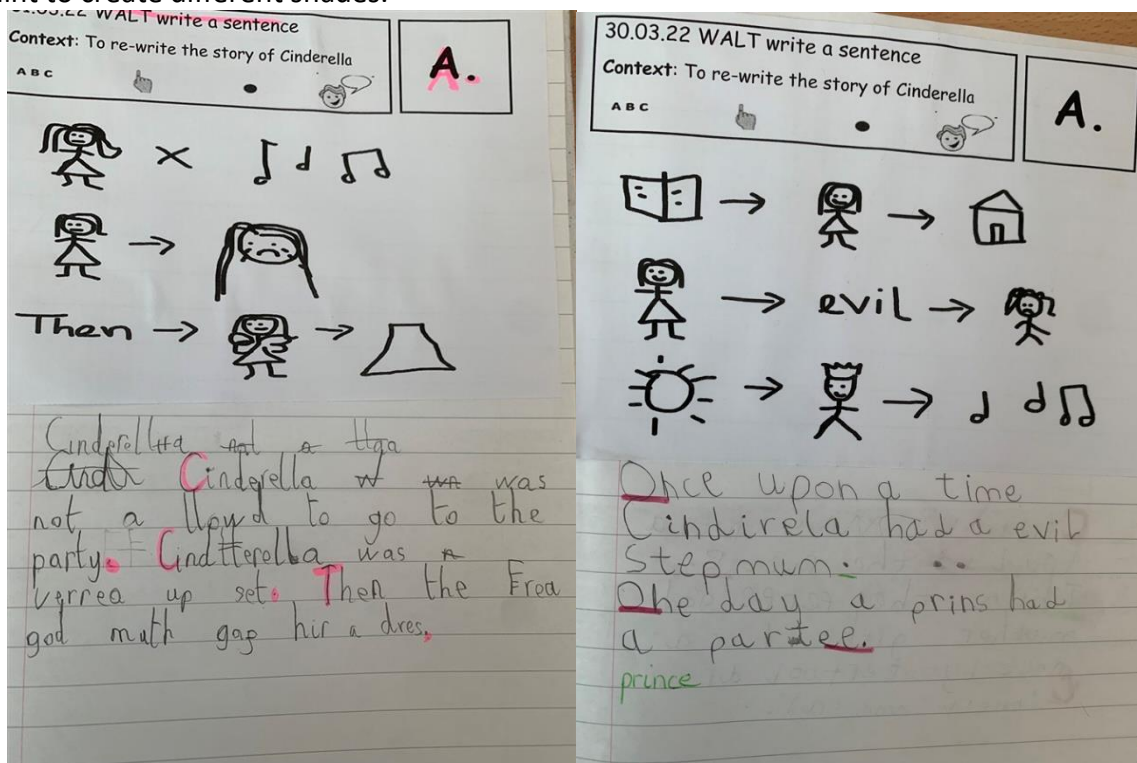 to create different shades.
WALT write a sentence
Context: To re-write the story of Cinderella
A B C
A.
Then
Cinderella
Cinderella was
not a llowd to go to the
party. Cindtterella was
verrea up set. Then the Frea
god muth gap hir a dres.
30.03.22 WALT write a sentence
Context: To re-write the story of Cinderella
A B C
A.
evil
Once upon a time
Cindirela had a evil
Step mum.
One day a prins had
a partee.
prince